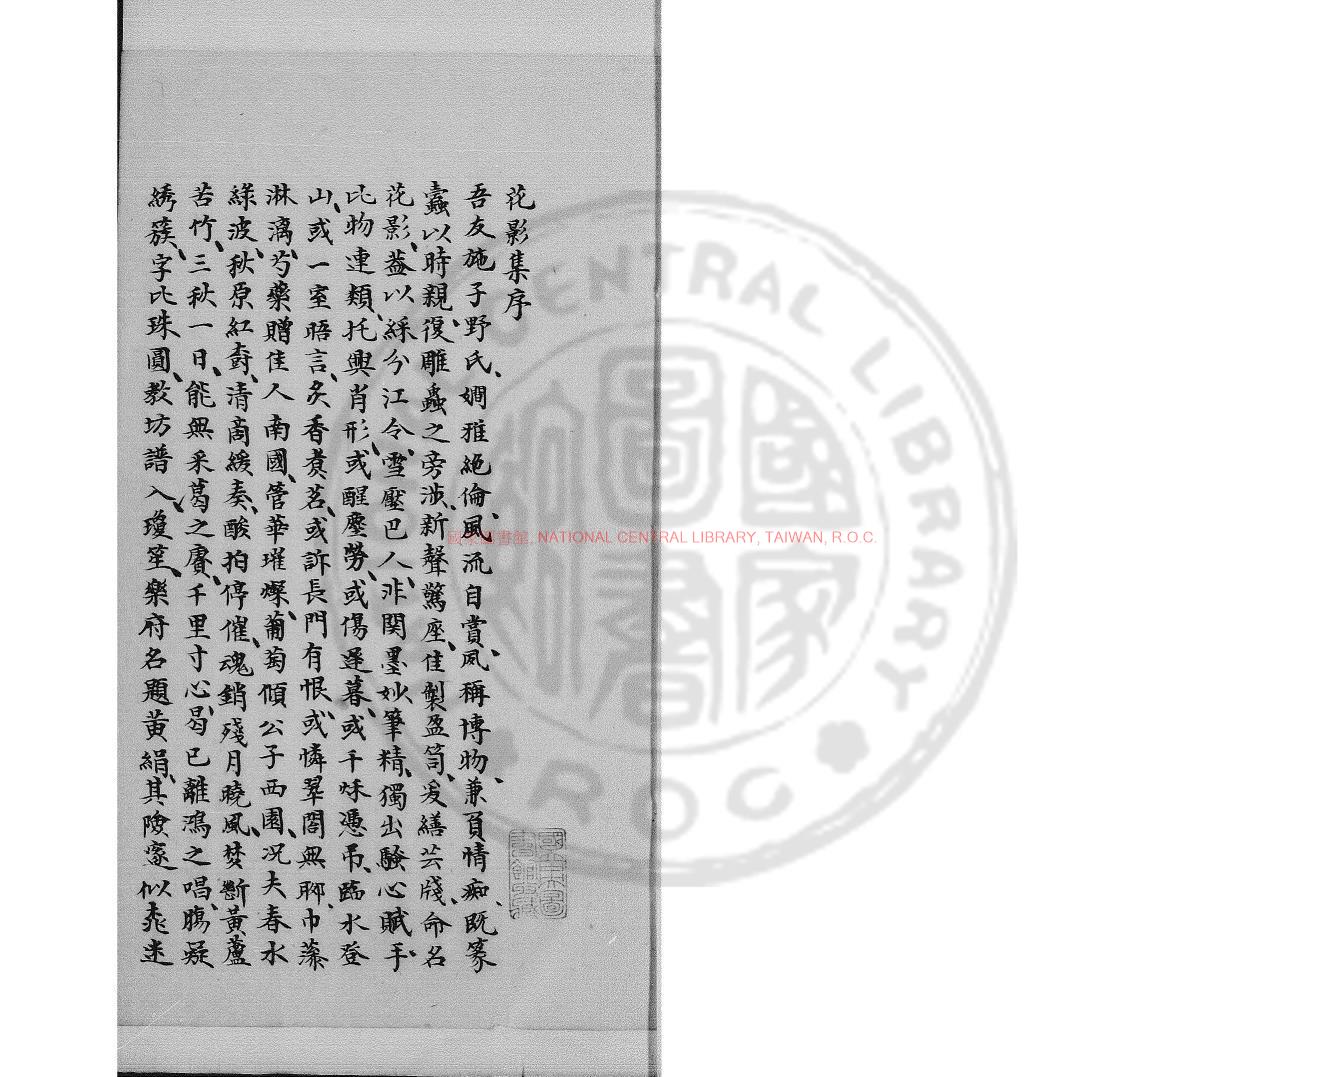 花影集序
吾友施子野氏、嫺雅絕倫、風流自賞、夙稱博物、兼負情痴、既篆
蠹以時親、復雕蟲之旁涉、新聲驚座、佳製盈笥、爰繕芸牋、命名
花影、蓋以綵分江令、雪壓巴人、非関墨妙筆精、獨出驗心賦手、
比物連類、托興肖形、或醒塵勞、或傷遲暮、或千秌憑吊、臨水登
山、或一室晤言、炙香煑茗、或訴長門有恨、或憐翠閣無聊、巾蘸
淋漓、芍藥贈佳人南國、管華璀燦、葡萄傾公子西園、况夫春水
綠波、秋原紅樹、清商緩奏、酸拍停催、魂銷殘月曉風、焚斷黃蘆
苦竹、三秋一日、能無采葛之賡、千里寸心、曷已離鴻之唱、腸疑
綉簇、字比珠圓、教坊譜入瓊笙、樂府名題黃絹、其險邃似桃迷
國家圖書館, NATIONAL CENTRAL LIBRARY, TAIWAN, R.O.C.
CENTRAL LIBRARY
R O C
國家圖書